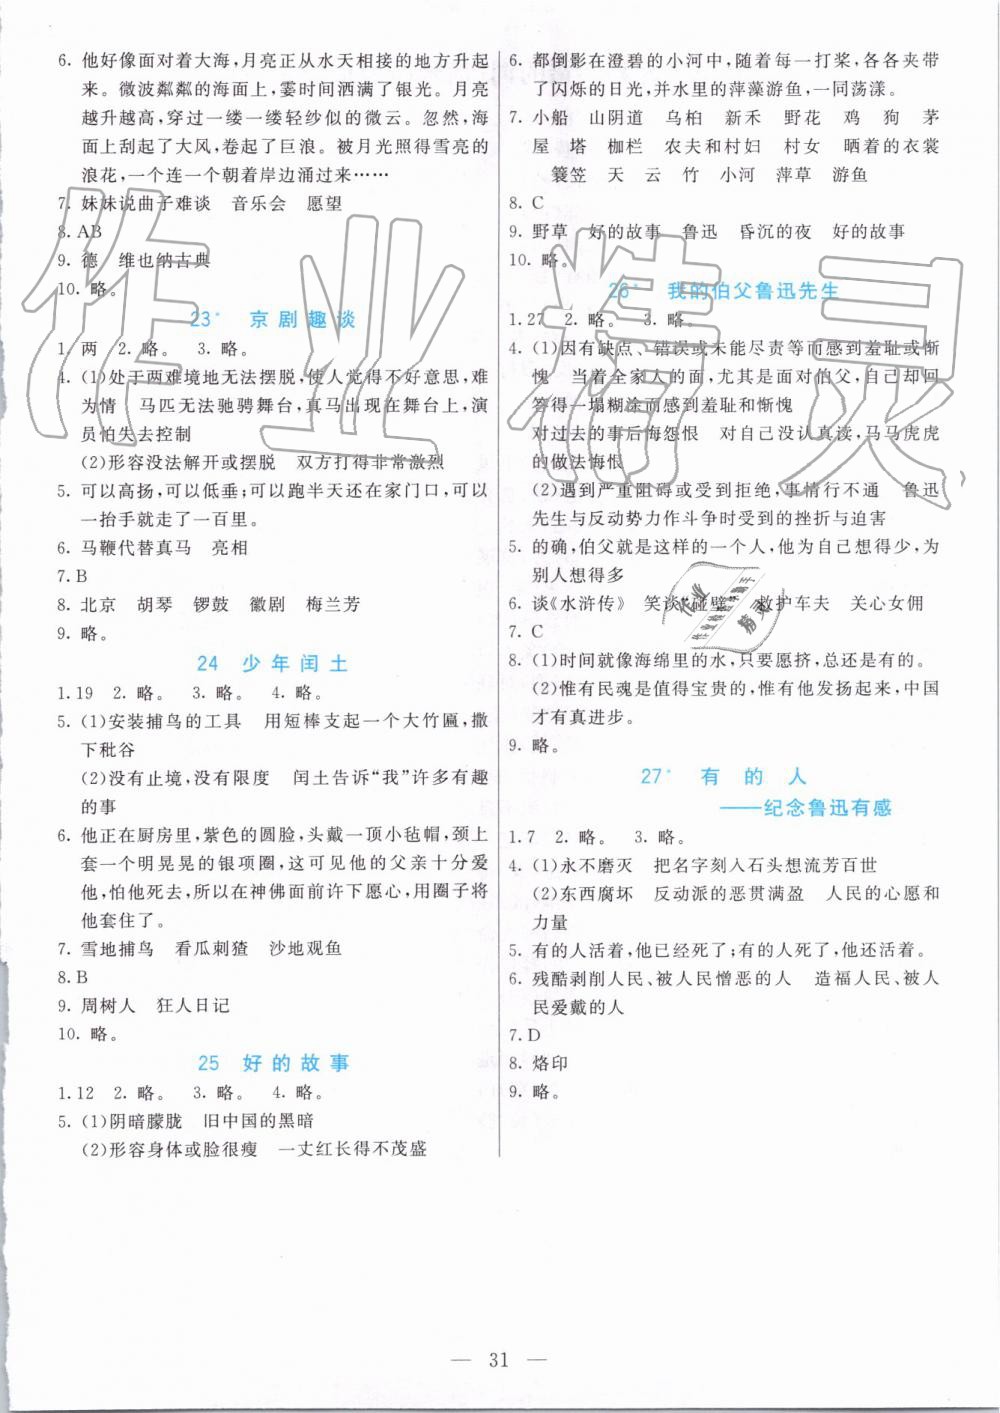 6. 他好像面对着大海,月亮正从水天相接的地方升起
来。微波粼粼的海面上,霎时间洒满了银光。月亮
越升越高,穿过一缕一缕轻纱似的微云。忽然,海
面上刮起了大风,卷起了巨浪。被月光照得雪亮的
浪花,一个连一个朝着岸边涌过来……
7. 妹妹说曲子难谈 音乐会 愿望
8. AB
9. 德 维也纳古典
10. 略。
23* 京剧趣谈
1. 两 2. 略。 3. 略。
4. (1)处于两难境地无法摆脱,使人觉得不好意思,难
为情 马匹无法驰骋舞台,真马出现在舞台上,演
员怕失去控制
(2)形容没法解开或摆脱 双方打得非常激烈
5. 可以高扬,可以低垂;可以跑半天还在家门口,可以
一抬手就走了一百里。
6. 马鞭代替真马 亮相
7. B
8. 北京 胡琴 锣鼓 徽剧 梅兰芳
9. 略。
24 少年闰土
1. 19 2. 略。 3. 略。 4. 略。
5. (1)安装捕鸟的工具 用短棒支起一个大竹匾,撒
下秕谷
(2)没有止境,没有限度 闰土告诉“我”许多有趣
的事
6. 他正在厨房里,紫色的圆脸,头戴一顶小毡帽,颈上
套一个明晃晃的银项圈,这可见他的父亲十分爱
他,怕他死去,所以在神佛面前许下愿心,用圈子将
他套住了。
7. 雪地捕鸟 看瓜刺猹 沙地观鱼
8. B
9. 周树人 狂人日记
10. 略。
25 好的故事
1. 12 2. 略。 3. 略。 4. 略。
5. (1)阴暗朦胧 旧中国的黑暗
(2)形容身体或脸很瘦 一丈红长得不茂盛
6. 都倒影在澄碧的小河中,随着每一打桨,各各夹带
了闪烁的日光,并水里的萍藻游鱼,一同荡漾。
7. 小船 山阴道 乌桕 新禾 野花 鸡 狗 茅
屋 塔 枷栏 农夫和村妇 村女 晒着的衣裳
蓑笠 天 云 竹 小河 萍草 游鱼
8. C
9. 野草 好的故事 鲁迅 昏沉的夜 好的故事
10. 略。
26* 我的伯父鲁迅先生
1. 27 2. 略。 3. 略。
4. (1)因有缺点、错误或未能尽责等而感到羞耻或惭
愧 当着全家人的面,尤其面对伯父,自己却回
答得一塌糊涂而感到羞耻和惭愧
对过去的事后悔怨恨 对自己没认真读,马马虎虎
的做法悔恨
(2)遇到严重阻碍或受到拒绝,事情行不通 鲁迅
先生与反动势力作斗争时受到的挫折与迫害
5. 的确,伯父就是这样的一个人,他为自己想得少,为
别人想得多
6. 谈《水浒传》 笑谈“碰壁” 救护车夫 关心女佣
7. C
8. (1)时间就像海绵里的水,只要愿挤,总还是有的。
(2)惟有民魂是值得宝贵的,惟有他发扬起来,中国
才有真进步。
9. 略。
27* 有的人
——纪念鲁迅有感
1. 7 2. 略。 3. 略。
4. (1)永不磨灭 把名字刻入石头想流芳百世
(2)东西腐坏 反动派的恶贯满盈 人民的心愿和
力量
5. 有的人活着,他已经死了;有的人死了,他还活着。
6. 残酷剥削人民、被人民憎恶的人 造福人民、被人
民爱戴的人
7. D
8. 烙印
9. 略。
— 31 —
作业精灵